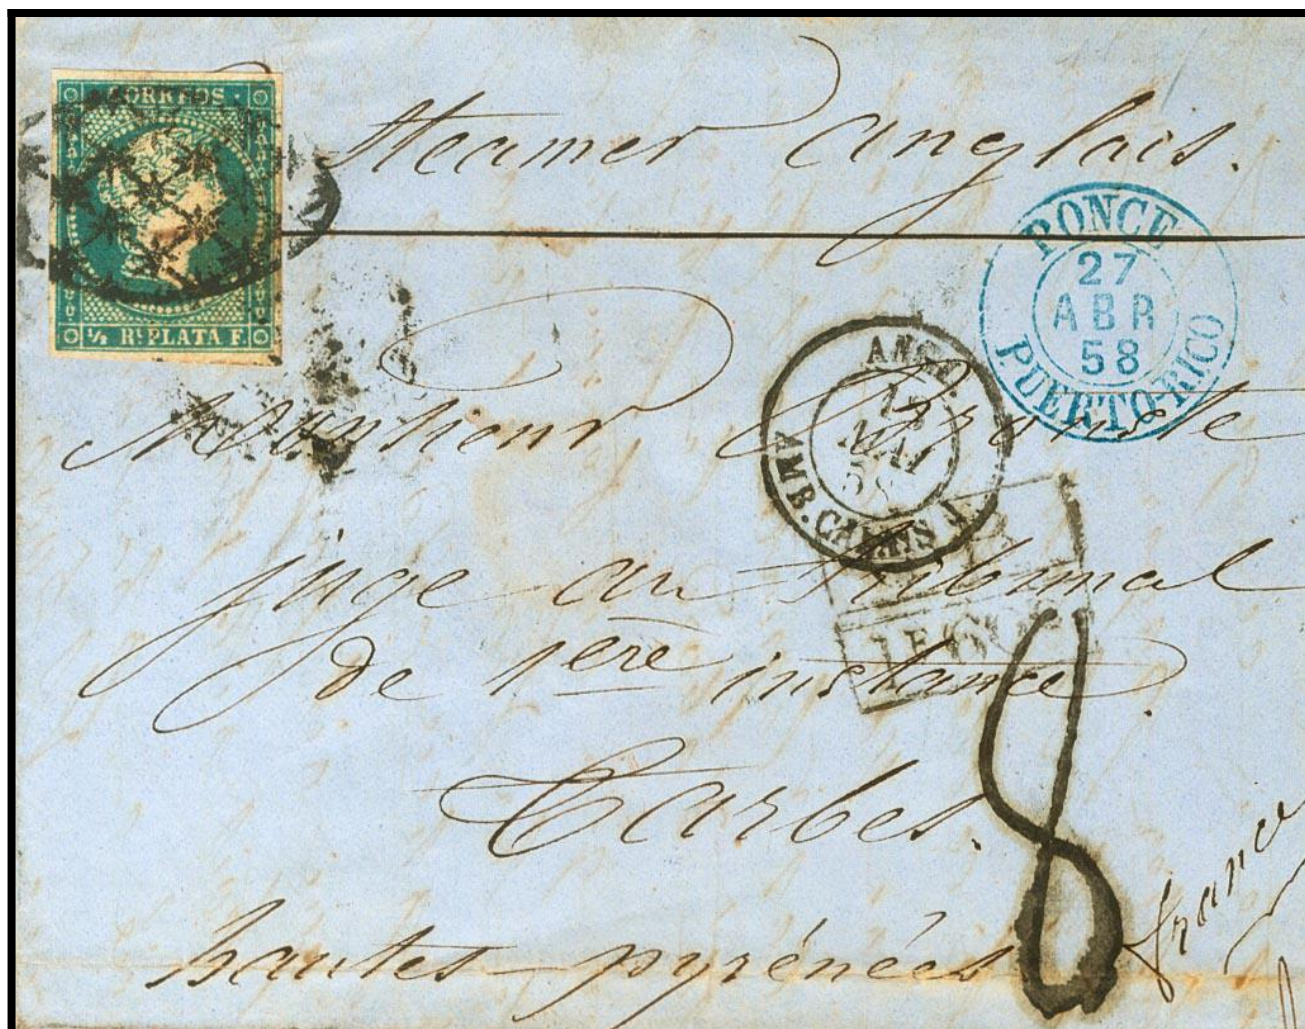 CORREOS
½ Rl. PLATA F.
Steamer anglais.
PONCE
27
ABR
58
PUERTO-RICO
ANGL.
MAI
58
AMB. CALAIS
Monsieur
juge au tribunal
de 1ère instance.
Tarbes.
8
hautes-pyrénées
france